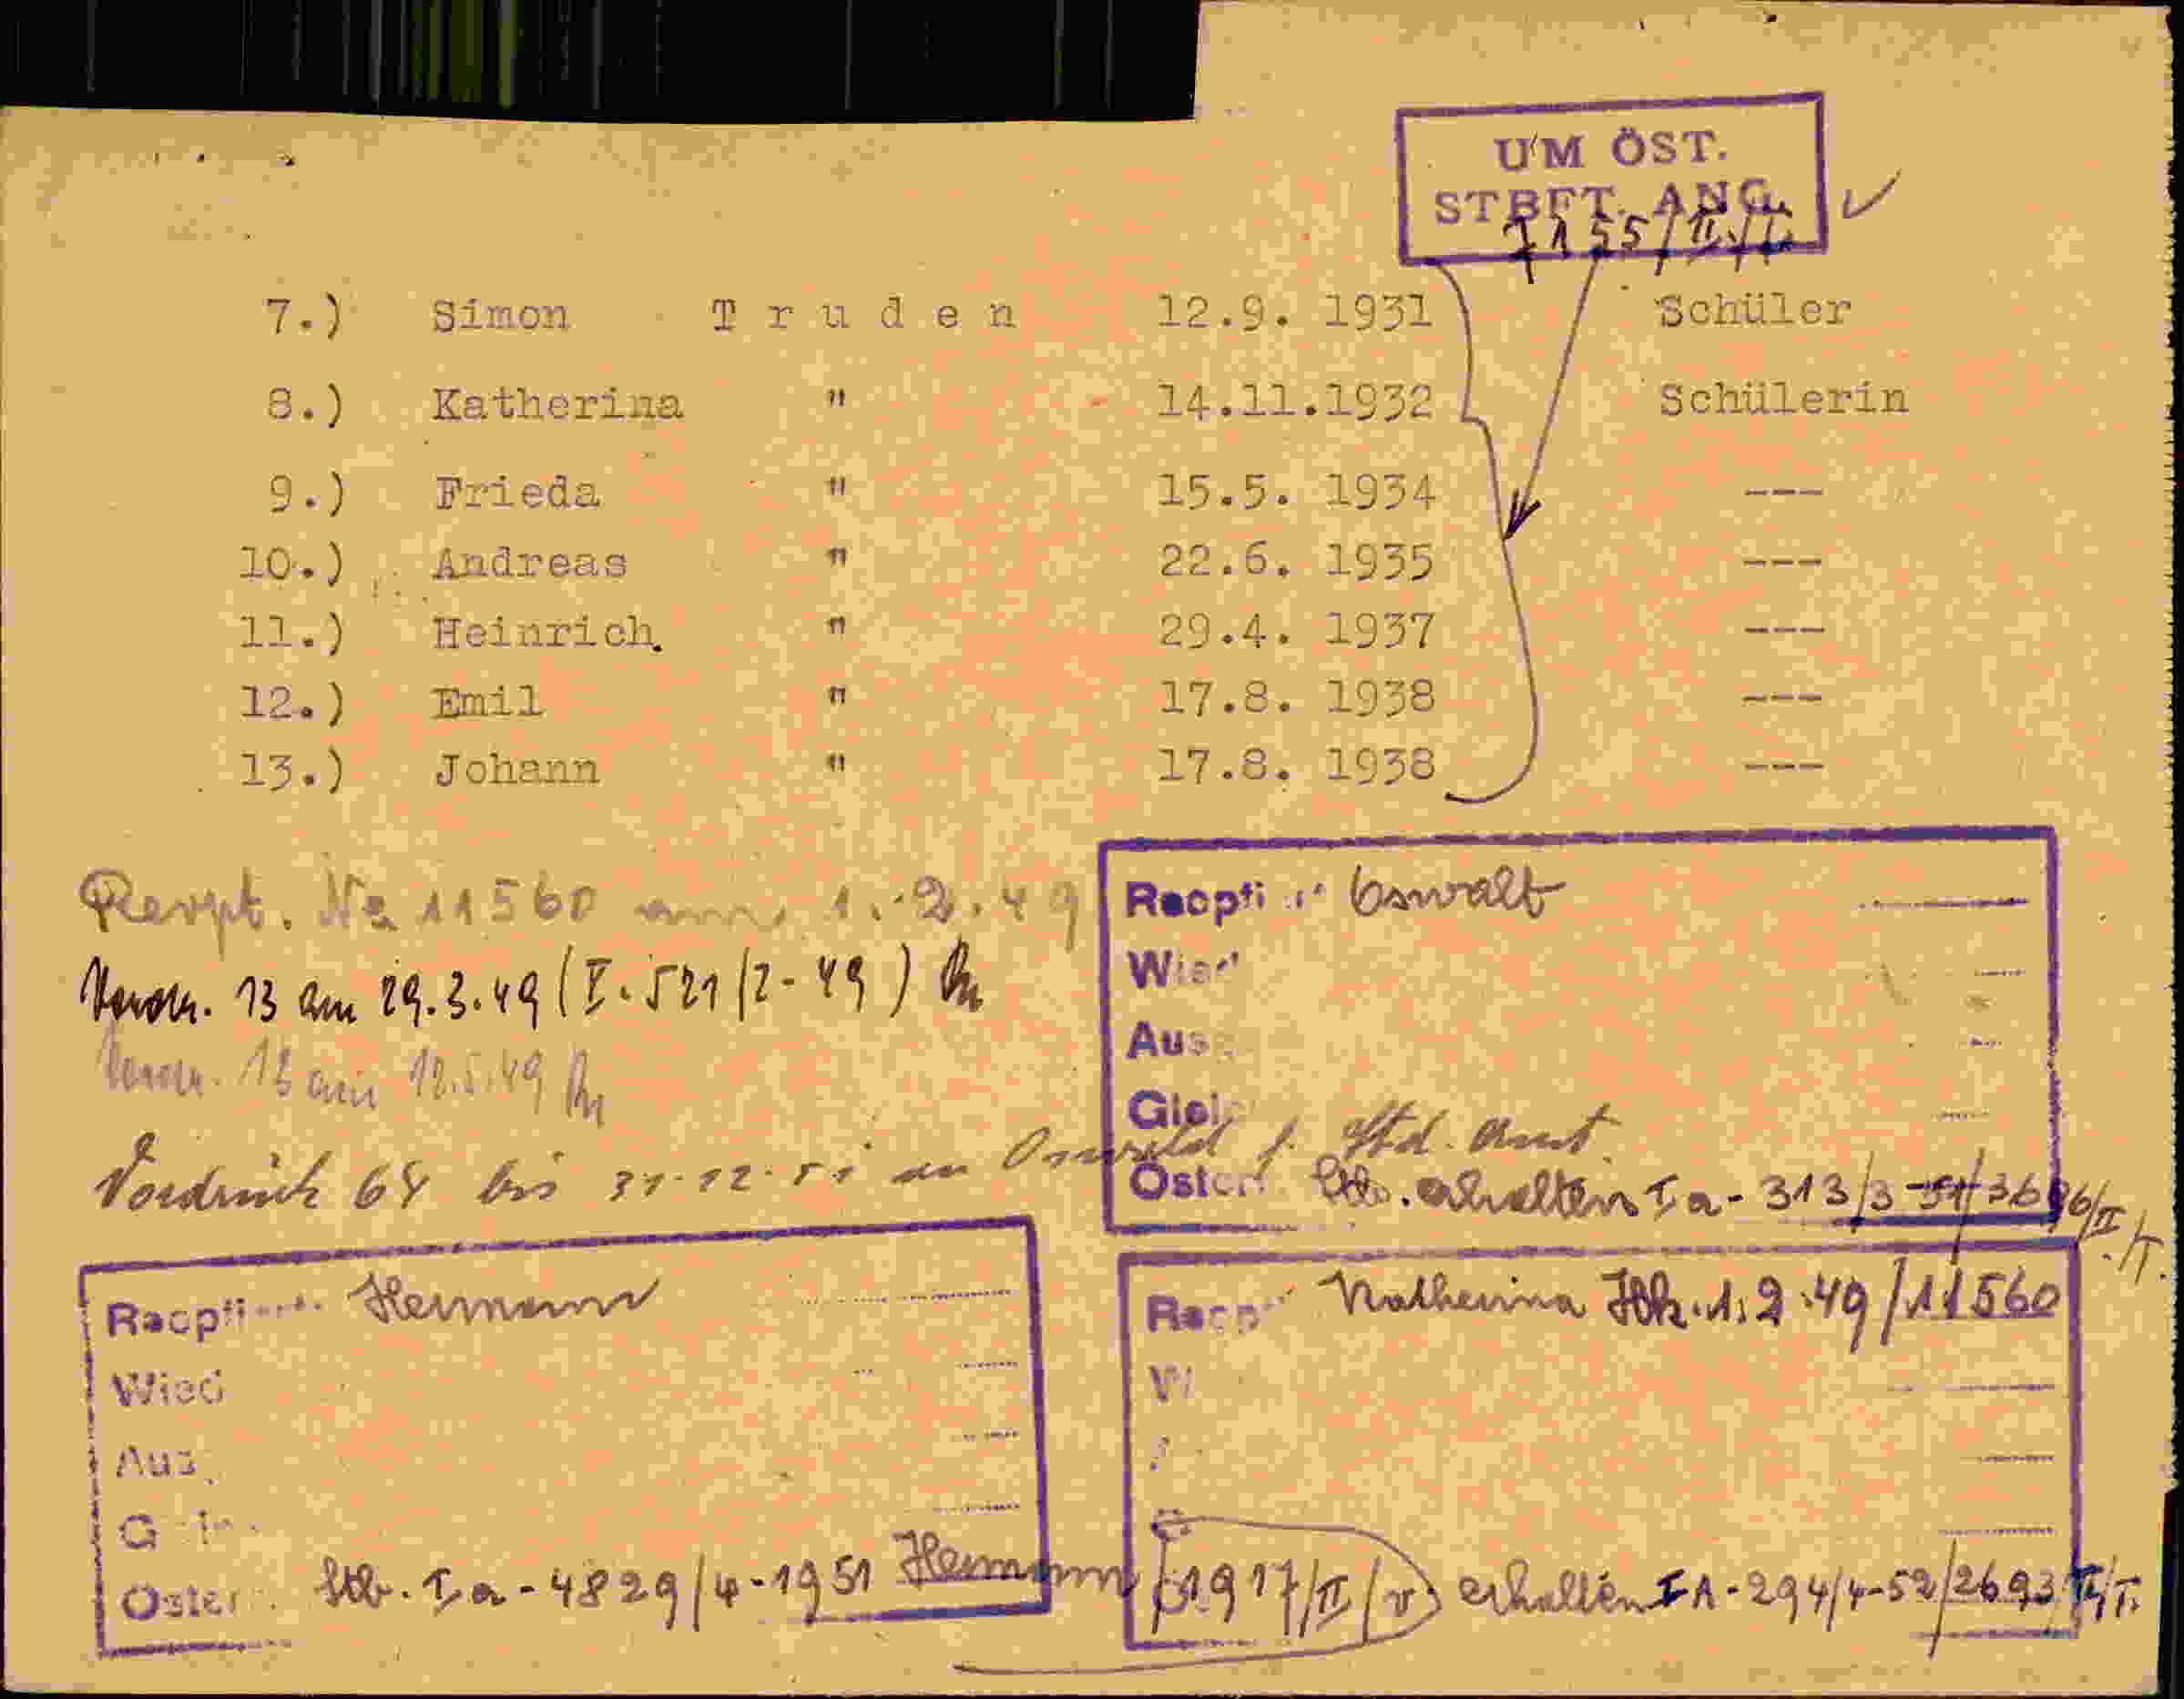 UM ÖST.
STBFT. ANG.
7155/II./T.
7.) Simon T r u d e n 12.9. 1931 Schüler
8.) Katherina " 14.11.1932 Schülerin
9.) Frieda " 15.5. 1934 ---
10.) Andreas " 22.6. 1935 ---
11.) Heinrich. " 29.4. 1937 ---
12.) Emil " 17.8. 1938 ---
13.) Johann " 17.8. 1938 ---
Recpt. No 11560 am 1.2.49
13 am 29.3.49 (I. 521/2-49)
13 am 18.5.49
Vordruck 64 bis 31.12.51 an Oswald f. Std. Amt.
Racpti Oswalt
Wied
Ausg
Glei
Österr. Stb. erhalten I a - 313/3-51/3696/II./T.
Racptiert. Hermann
Wied
Aus
G
Öster Stb. I a - 4829/4-1951 Hermann
Racp Katherina Hk. 1.2.49/11560
W
Ö
51917/II/v. erhalten I A - 294/4-52/2693 II/T.